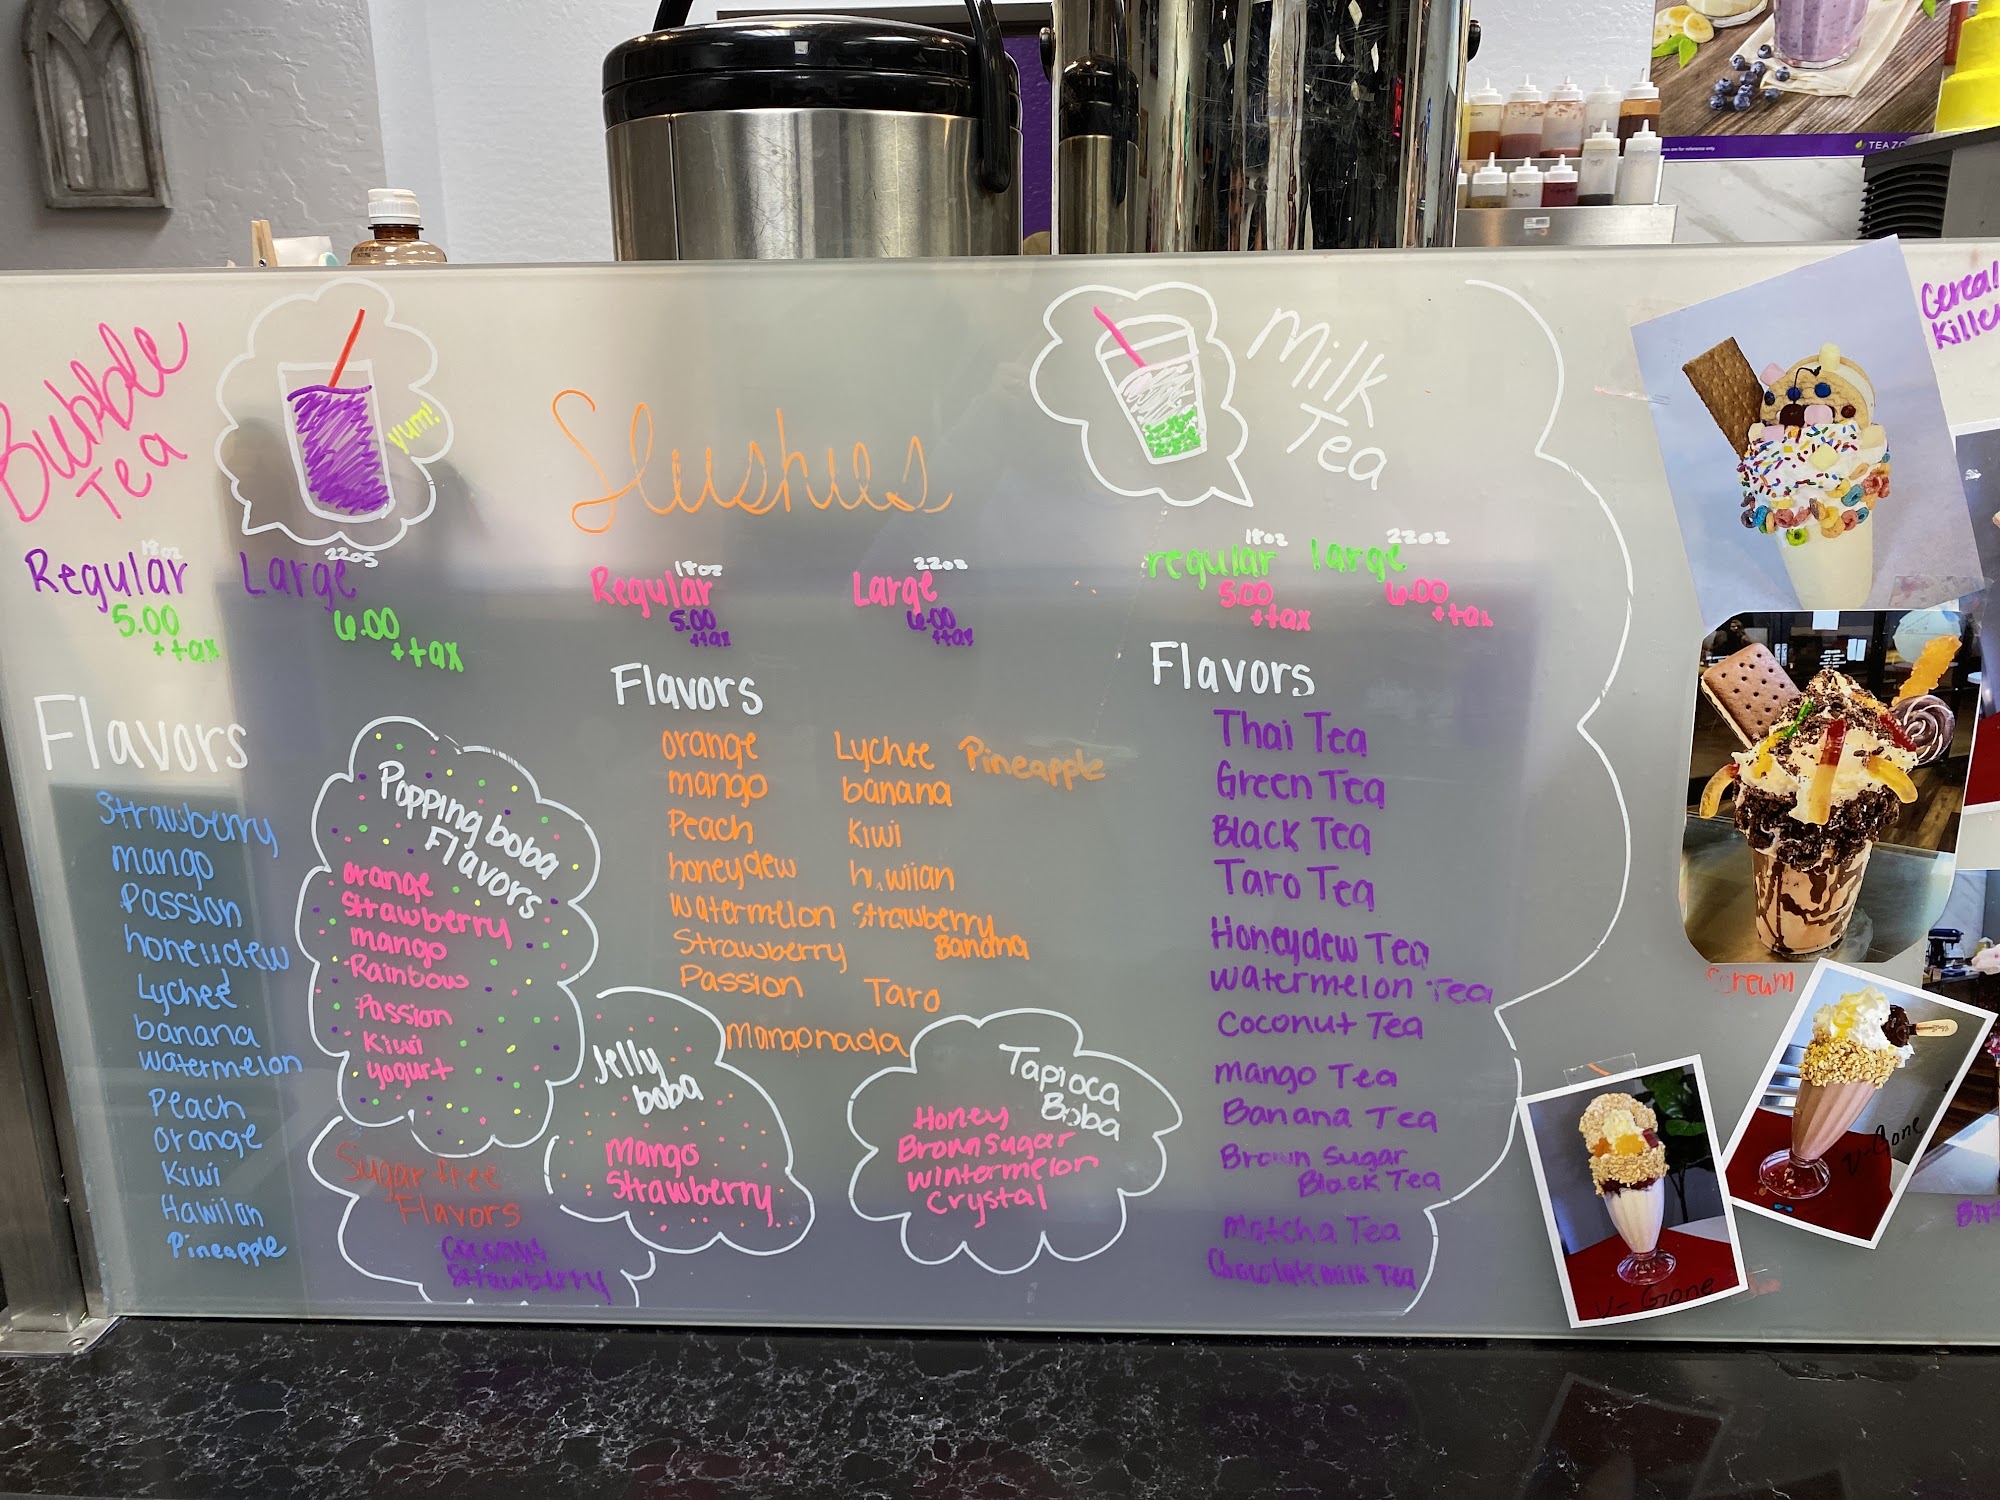 Bubble
Tea
yum!
Regular 18oz
5.00
+tax
Large 22os
6.00
+tax
Flavors
Strawberry
mango
Passion
honeydew
Lychee
banana
watermelon
Peach
orange
Kiwi
Hawiian
Pineapple
Popping boba
Flavors
orange
Strawberry
mango
Rainbow
Passion
Kiwi
yogurt
Sugar free
Flavors
Strawberry
Jelly
boba
Mango
Strawberry
Slushies
Regular 18oz
5.00
+tax
Large 22oz
6.00
+tax
Flavors
orange
mango
Peach
honeydew
watermelon
Strawberry
Passion
Mangonada
Lychee
banana
Kiwi
Strawberry
Banana
Taro
Pineapple
Tapioca
Boba
Honey
Brownsugar
wintermelon
Crystal
Milk
Tea
regular 18oz
5.00
+tax
large 22oz
6.00
+tax
Flavors
Thai Tea
Green Tea
Black Tea
Taro Tea
Honeydew Tea
watermelon Tea
Coconut Tea
mango Tea
Banana Tea
Brown Sugar
Black Tea
Matcha Tea
Chocolate milk Tea
Cereal
V-Gone
V-Gone